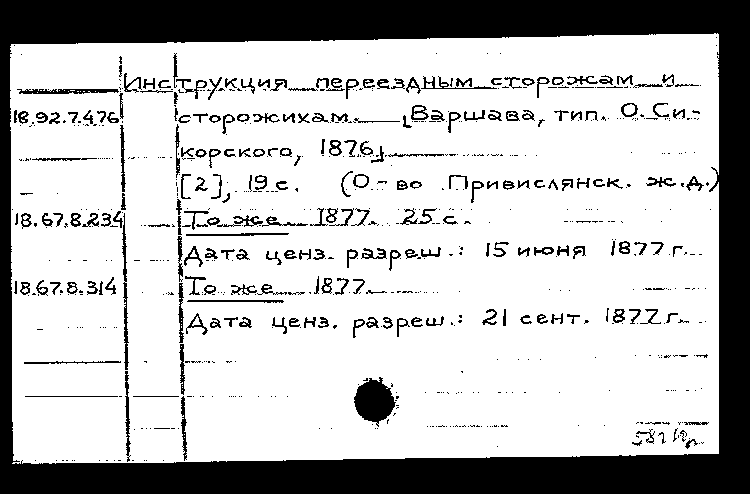 Инструкция переездным сторожам и
18.92.7.476 сторожихам. [Варшава, тип. О. Си-
корского, 1876]
[2], 19 с. (О-во Привислянск. ж.д.)
18.67.8.234 То же. 1877. 25 с.
Дата ценз. разреш.: 15 июня 1877 г.
18.67.8.314 То же 1877.
Дата ценз. разреш.: 21 сент. 1877 г.